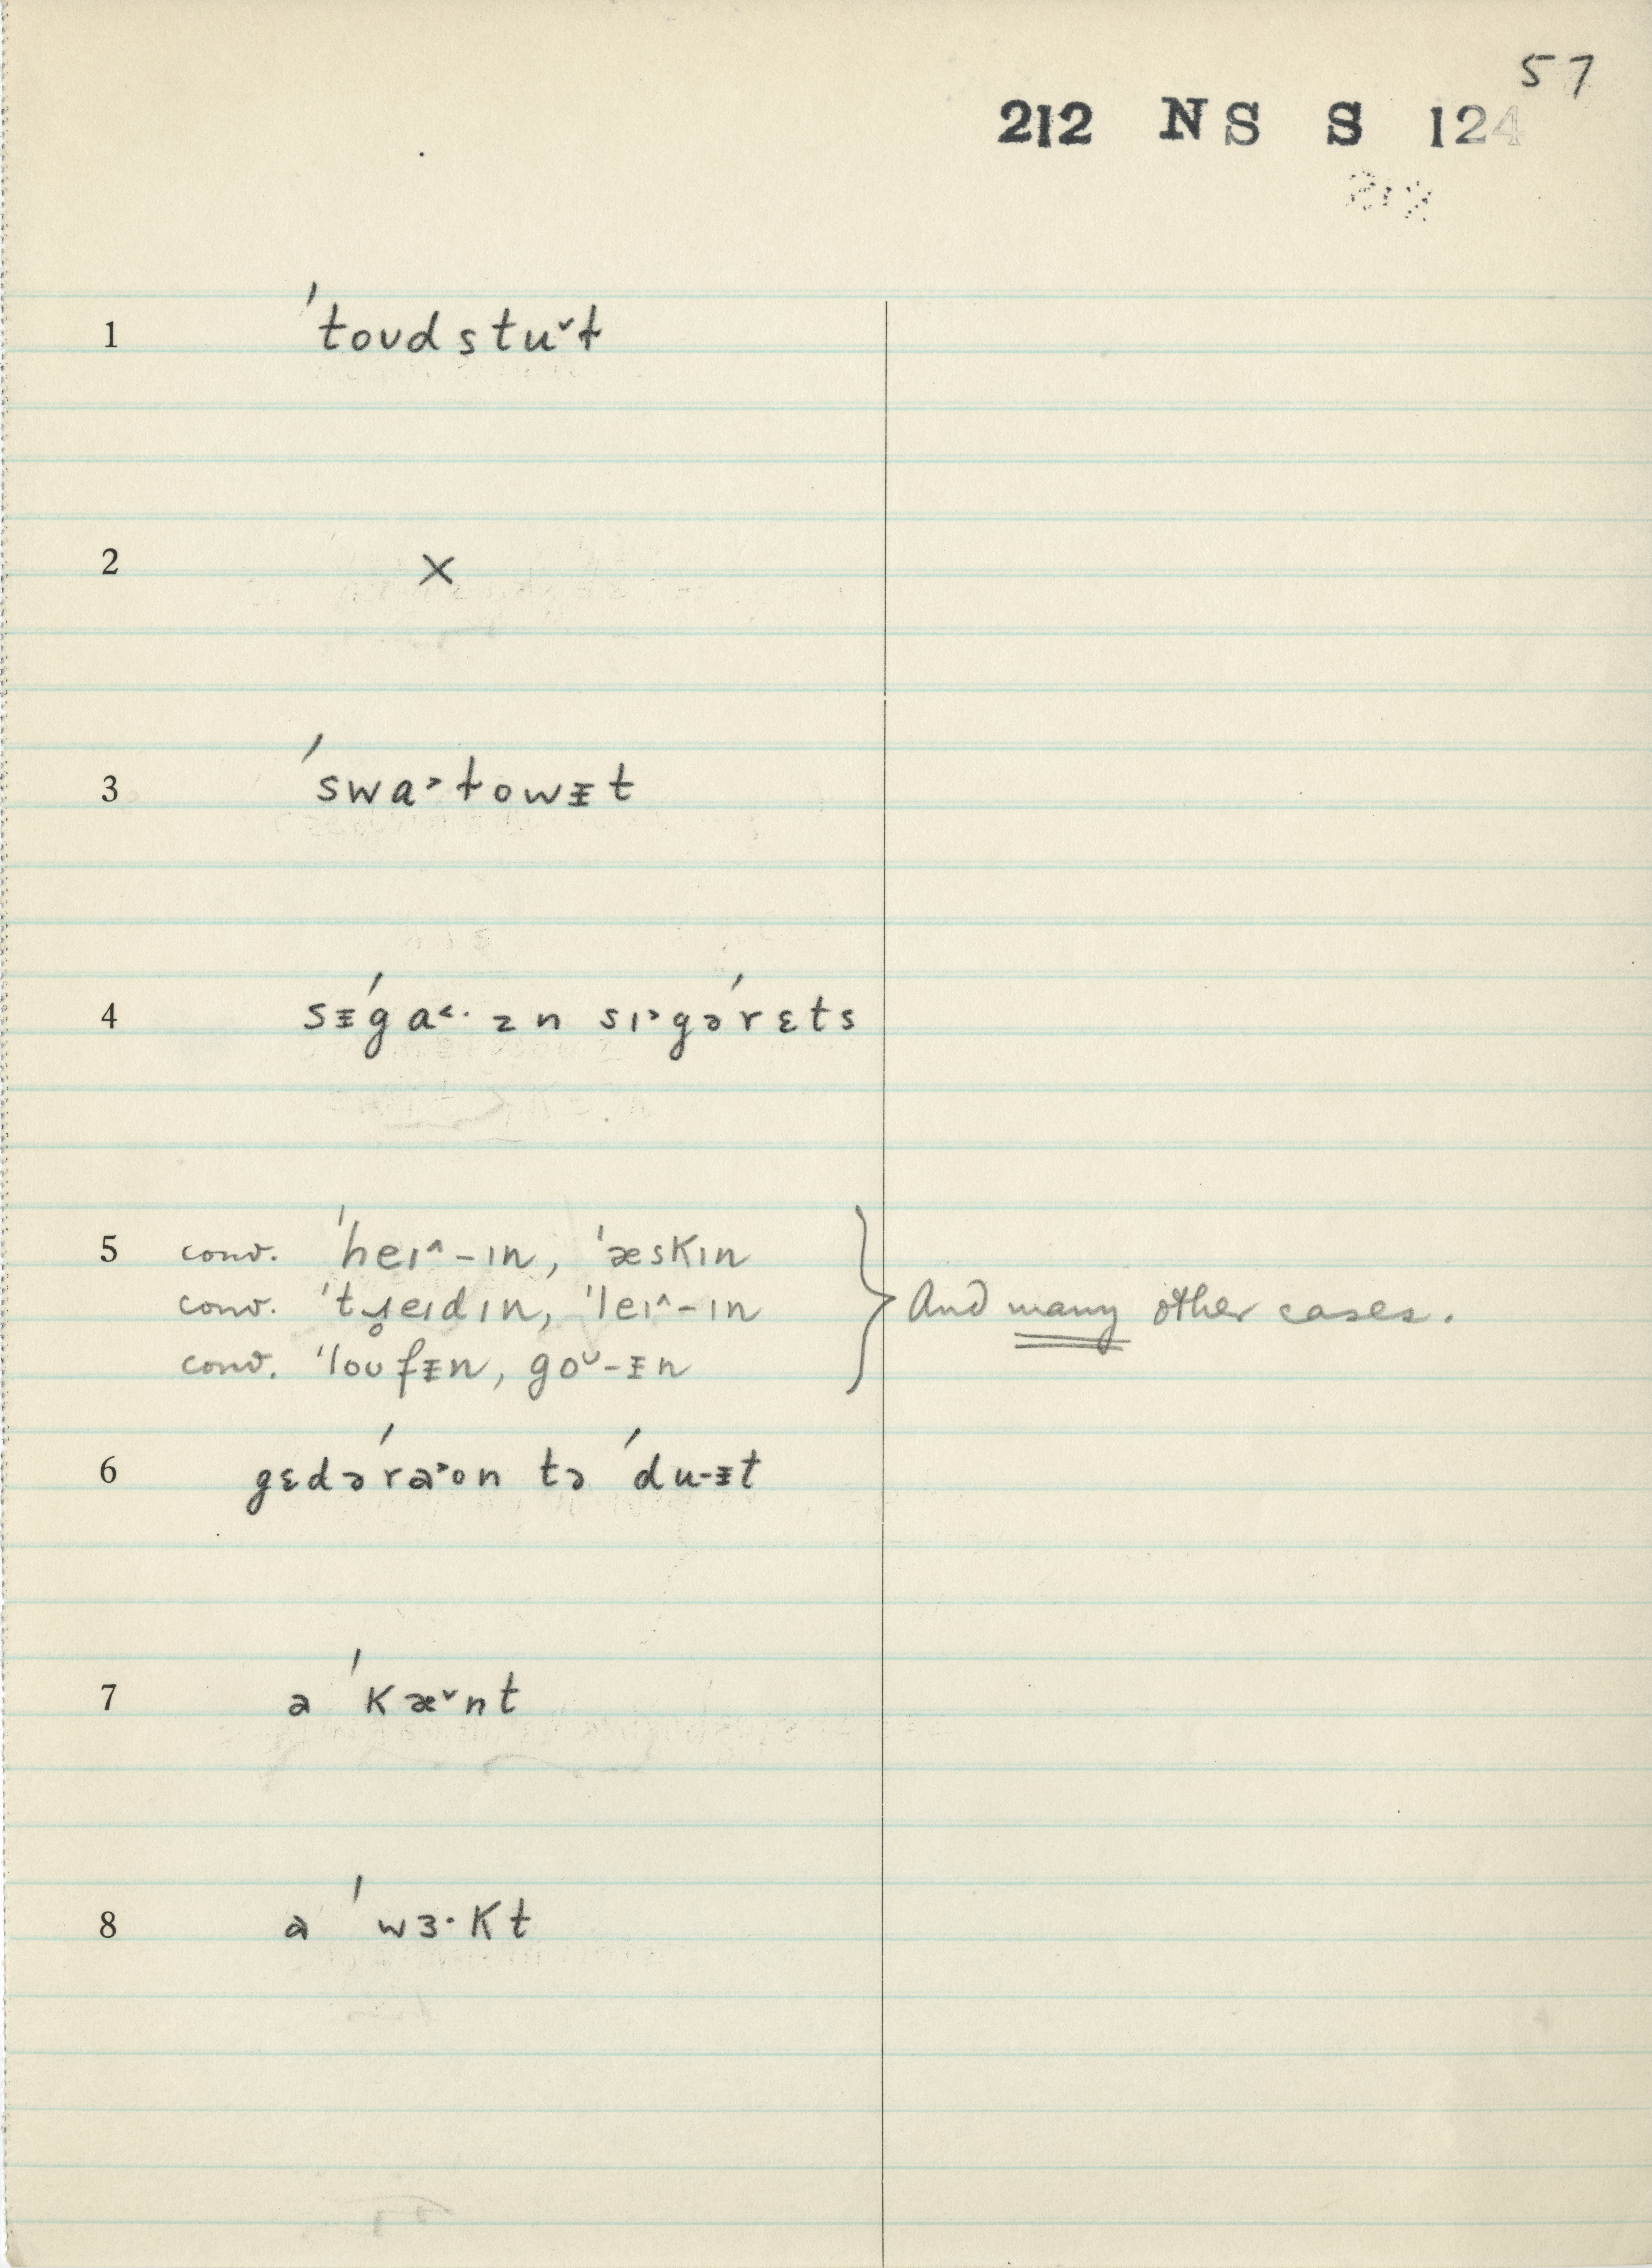 57
212 NS S 124
1 ˈtoʊdstu˅ɫ
2 ×
3 ˈswa˃ɫowᵻt
4 sᵻˈga˂· ən sɪ˃gəˈrɛts
5 conv. ˈheɪ^-ɪn, ˈæskɪn
conv. ˈtɹ̥eɪdɪn, ˈleɪ^-ɪn
conv. ˈloʊfᵻn, goᴜ-ᵻn
And many other cases.
6 gɛdəˈra˃on tə ˈdu-ᵻt
7 a ˈkæ˅nt
8 a ˈwɜ·kt